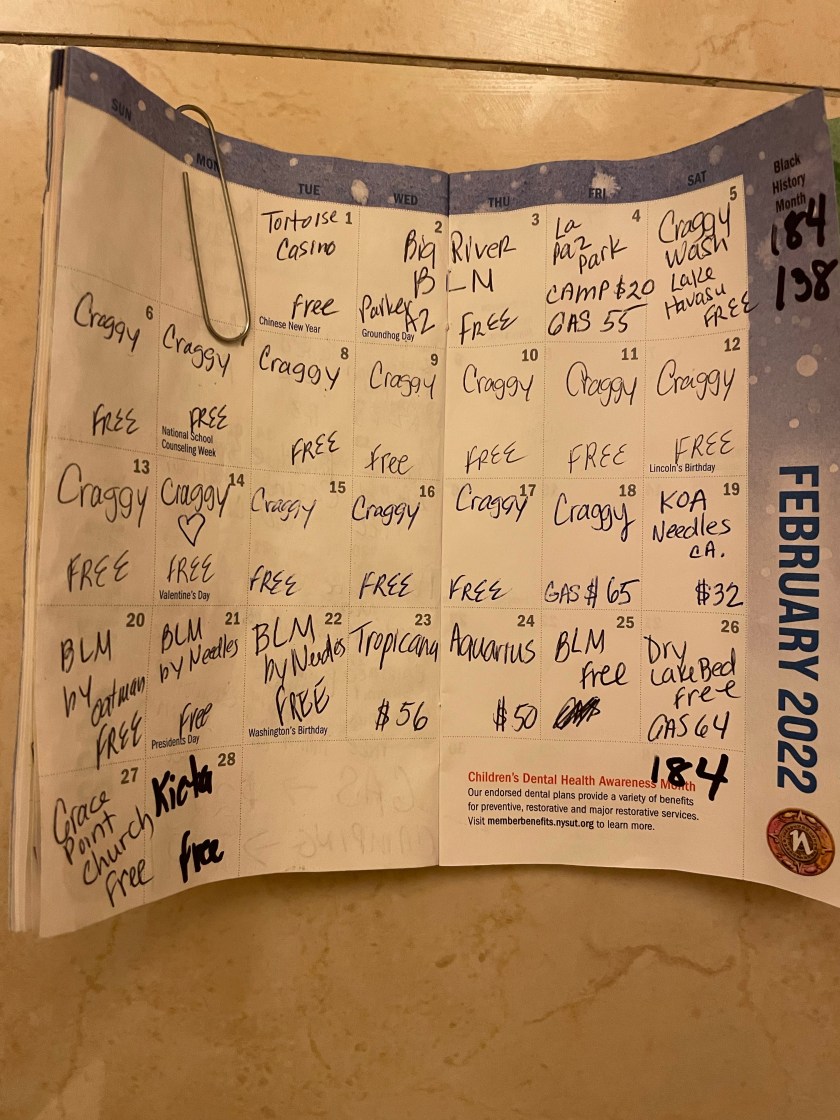 SUN MON TUE WED THU FRI SAT
Black
History
Month
184
138
1
Tortoise
Casino
free
Chinese New Year
2 3
Big River
BLM
Parker
AZ
FREE
Groundhog Day
4
La
Paz
Park
CAMP $20
GAS 55
5
Craggy
Wash
Lake
Havasu
FREE
6
Craggy
FREE
Craggy
FREE
National School
Counseling Week
8
Craggy
FREE
9
Craggy
free
10
Craggy
FREE
11
Craggy
FREE
12
Craggy
FREE
Lincoln's Birthday
13
Craggy
FREE
14
Craggy
FREE
Valentine's Day
15
Craggy
FREE
16
Craggy
FREE
17
Craggy
FREE
18
Craggy
GAS $65
19
KOA
Needles
CA.
$32
20
BLM
by Oatman
FREE
21
BLM
by Needles
Free
Presidents Day
22
BLM
by Needles
FREE
Washington's Birthday
23
Tropicana
$56
24
Aquarius
$50
25
BLM
free
26
Dry
Lake Bed
free
GAS 64
27
Grace
Point
Church
free
28
free
184
Children's Dental Health Awareness Month
Our endorsed dental plans provide a variety of benefits
for preventive, restorative and major restorative services.
Visit memberbenefits.nysut.org to learn more.
FEBRUARY 2022
n